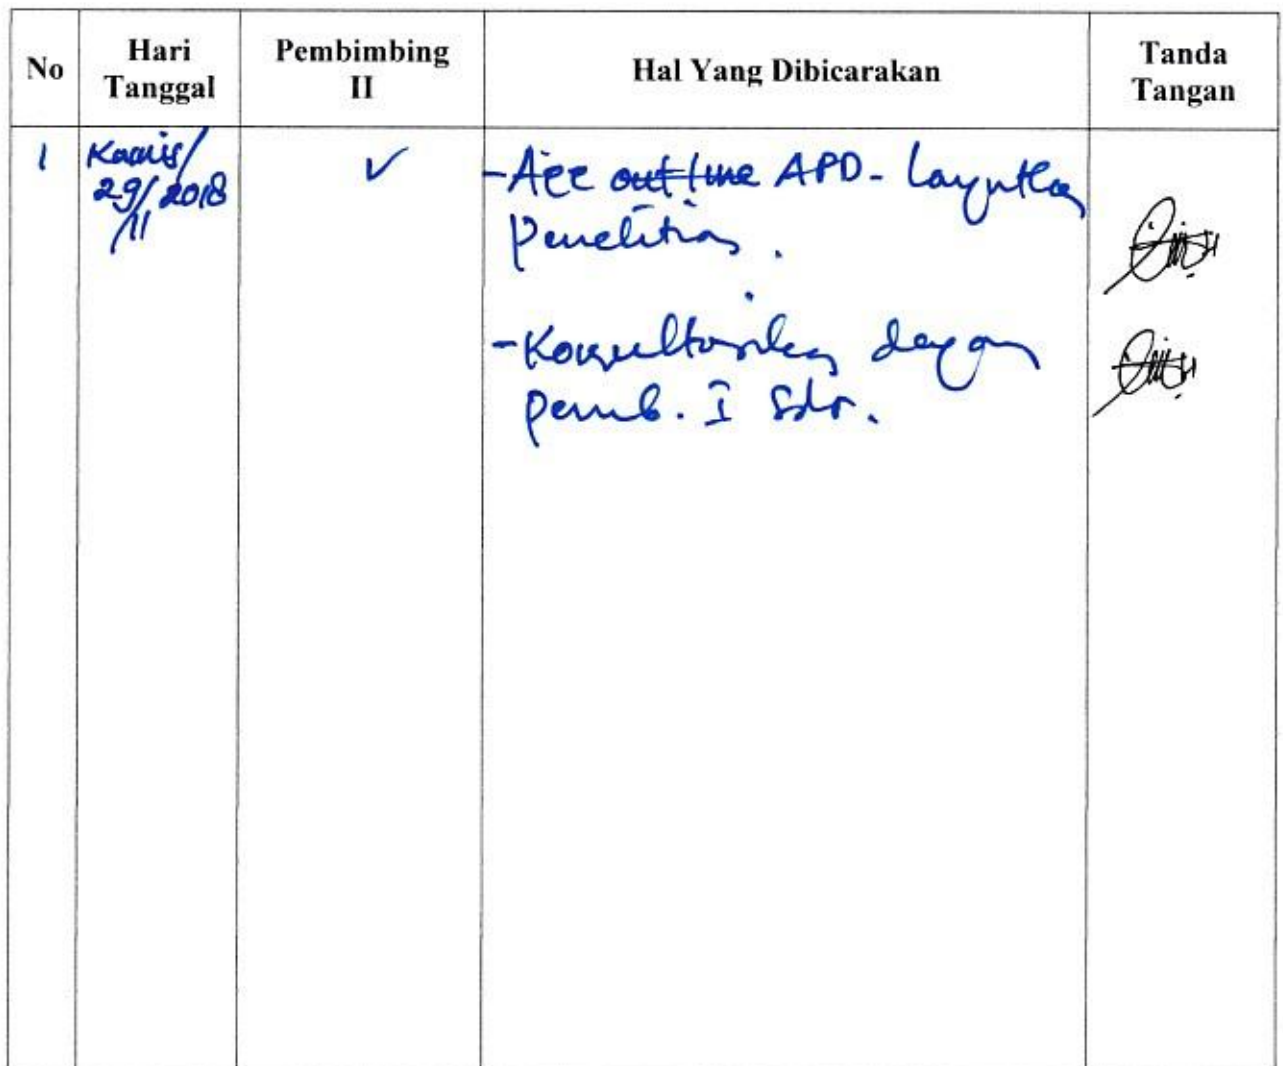 No
Hari
Tanggal
Pembimbing
II
Hal Yang Dibicarakan
Tanda
Tangan
1
Kamis/
29/11 2018
✓
-Acc outline APD- Lanjutkan
Penelitian.
-Konsultasikan dengan
pemb. I Sdr.